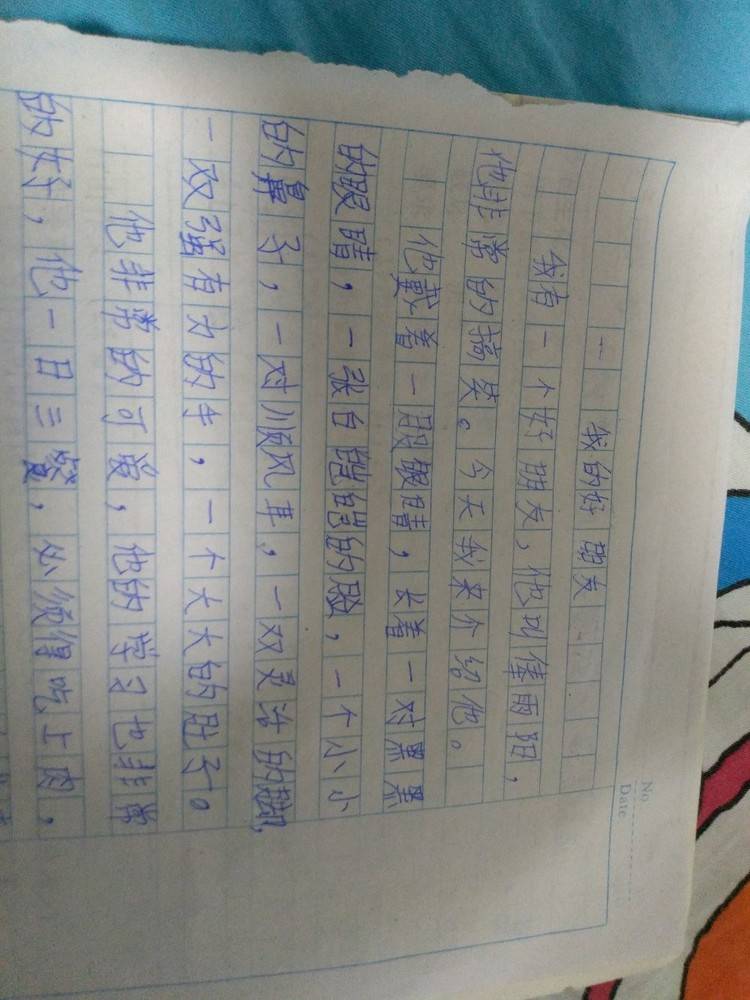 我的好朋友
我有一个好朋友,他叫雨阳,
他非常的搞笑。今天我来介绍他。
他戴着一股眼睛,长着一对黑黑
的眼睛,一张白皑皑的脸,一个小小
的鼻子,一对顺风耳,一双灵活的腿,
一双强有力的手,一个大大的肚子。
他非常的可爱,他的学习也非常
的好,他一日三餐,必须得吃上肉,
No
Date